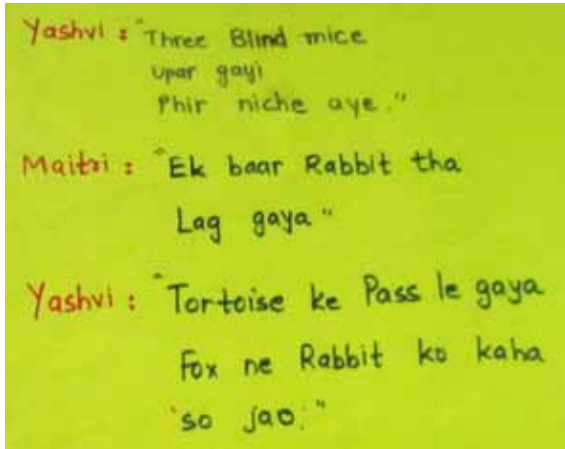 Yashvi : "Three Blind mice
upar gayi
Phir niche aye."
Maitri : "Ek baar Rabbit tha
Lag gaya"
Yashvi : "Tortoise ke Pass le gaya
Fox ne Rabbit ko kaha
'so jao.'"